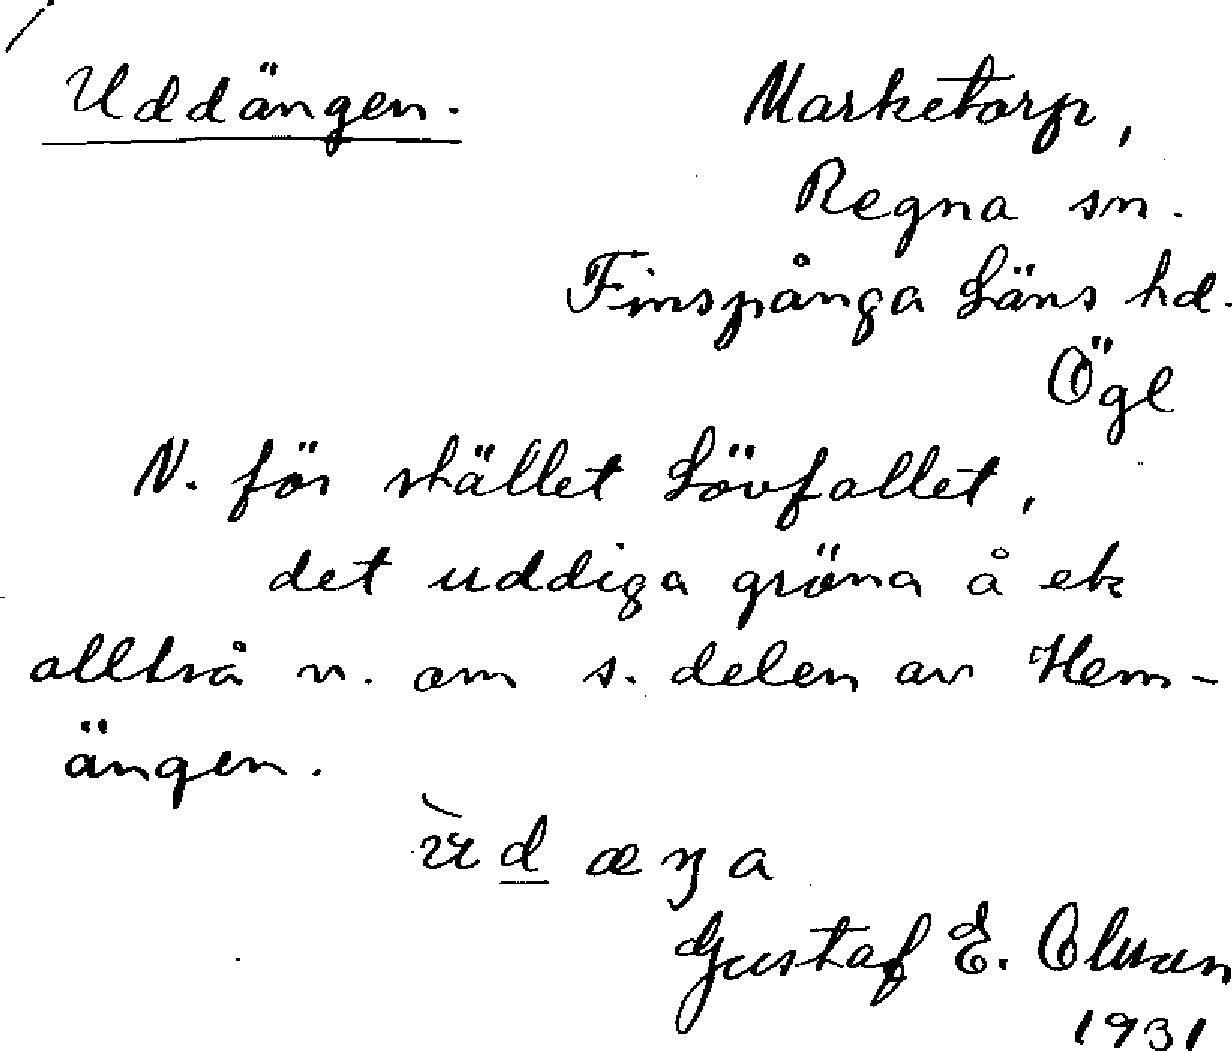 Uddängen.
Marketorp,
Regna sn.
Finspånga Läns hd.
Ögl
N. för stället Lövfallet,
det uddiga gröna å ek
alltså n. om s. delen av Hem-
ängen.
d æŋa
Gustaf E.
1931